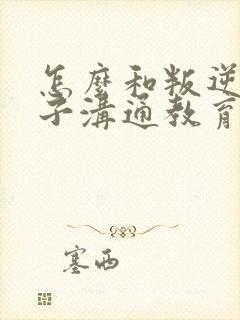 怎麼和叛逆
子溝通教育
塞西